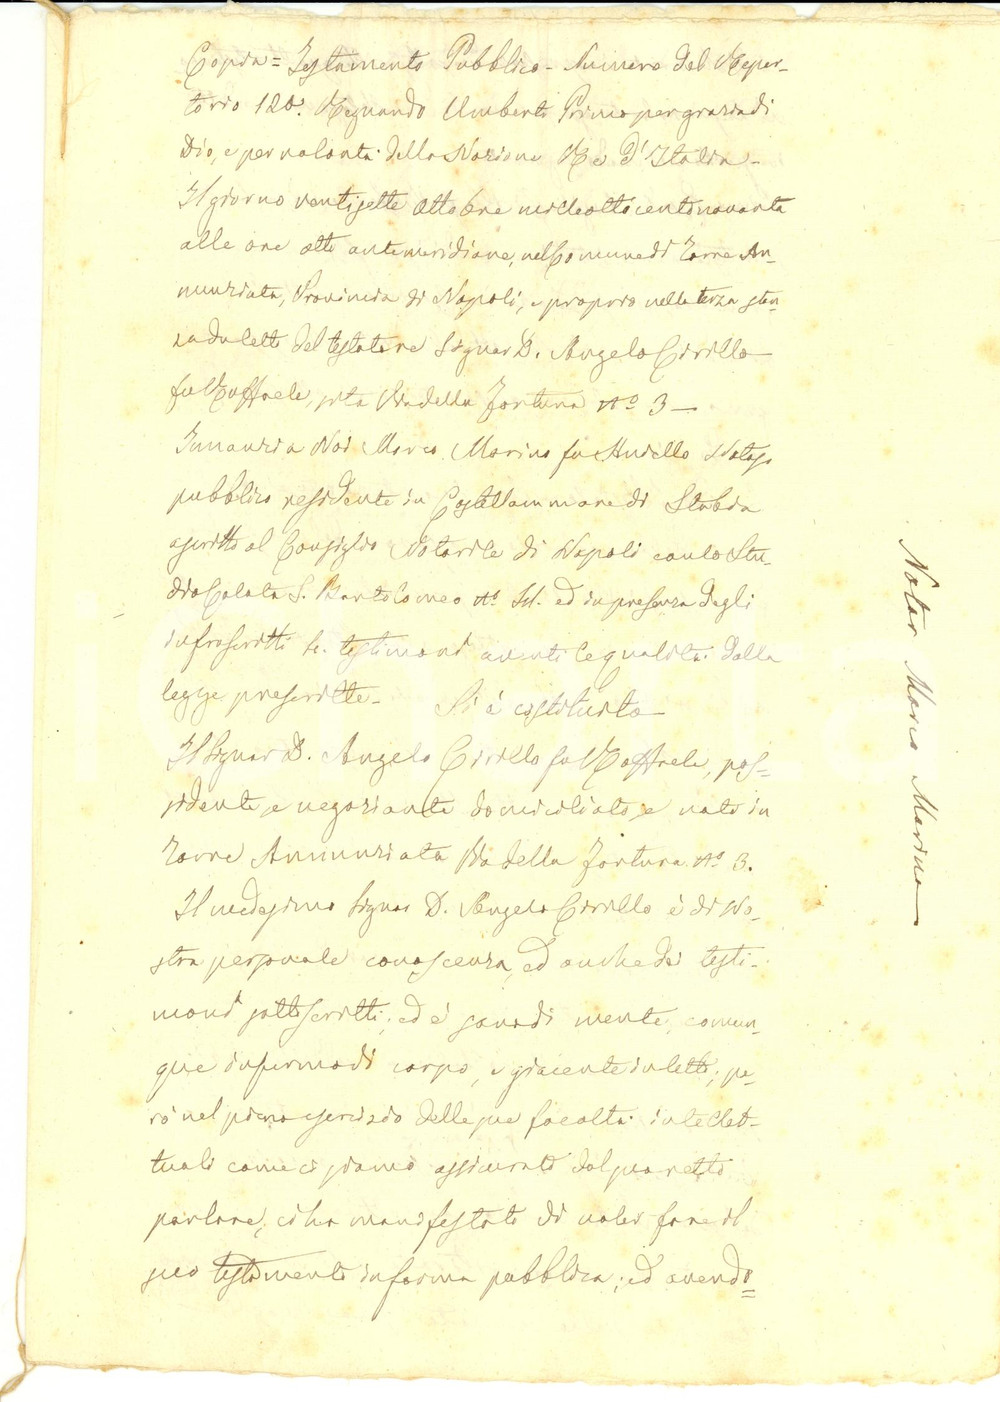 Copia = Testamento Pubblico - Numero del Reper-
torio 120. Regnando Umberto Primo per grazia di
Dio, e per volontà della Nazione Re d'Italia -
Il giorno ventisette Ottobre milleottocentonovanta
alle ore otto antemeridiane, nel Comune di Torre An-
nunziata, Provincia di Napoli, e proprio nella terza stan-
za da letto del testatore Signor D. Angelo Cirillo
fu Raffaele, sita Via della Fortuna No 3 -
Innanzi a Noi Marco Marino fu Aniello Notajo
pubblico residente in Castellammare di Stabia
ascritto al Consiglio Notarile di Napoli con lo Stu-
dio Calata S. Bartolomeo No ed in presenza degli
infrascritti testimoni aventi le qualità dalla
legge prescritte - Si è costituito -
Il Signor D. Angelo Cirillo fu Raffaele, pos-
sidente e negoziante domiciliato e nato in
Torre Annunziata Via della Fortuna No 3.
Il medesimo Signor D. Angelo Cirillo è di No-
stra personale conoscenza, ed anche dei testi-
moni sottoscritti; ed è sano di mente, comun-
que infermo di corpo, e giacente in letto; pe-
rò nel pieno esercizio delle sue facoltà intellet-
tuali come ci siamo assicurati dal suo retto
parlare, ci ha manifestato di voler fare il
suo testamento in forma pubblica; ed avendo=
Notar Marco Marino